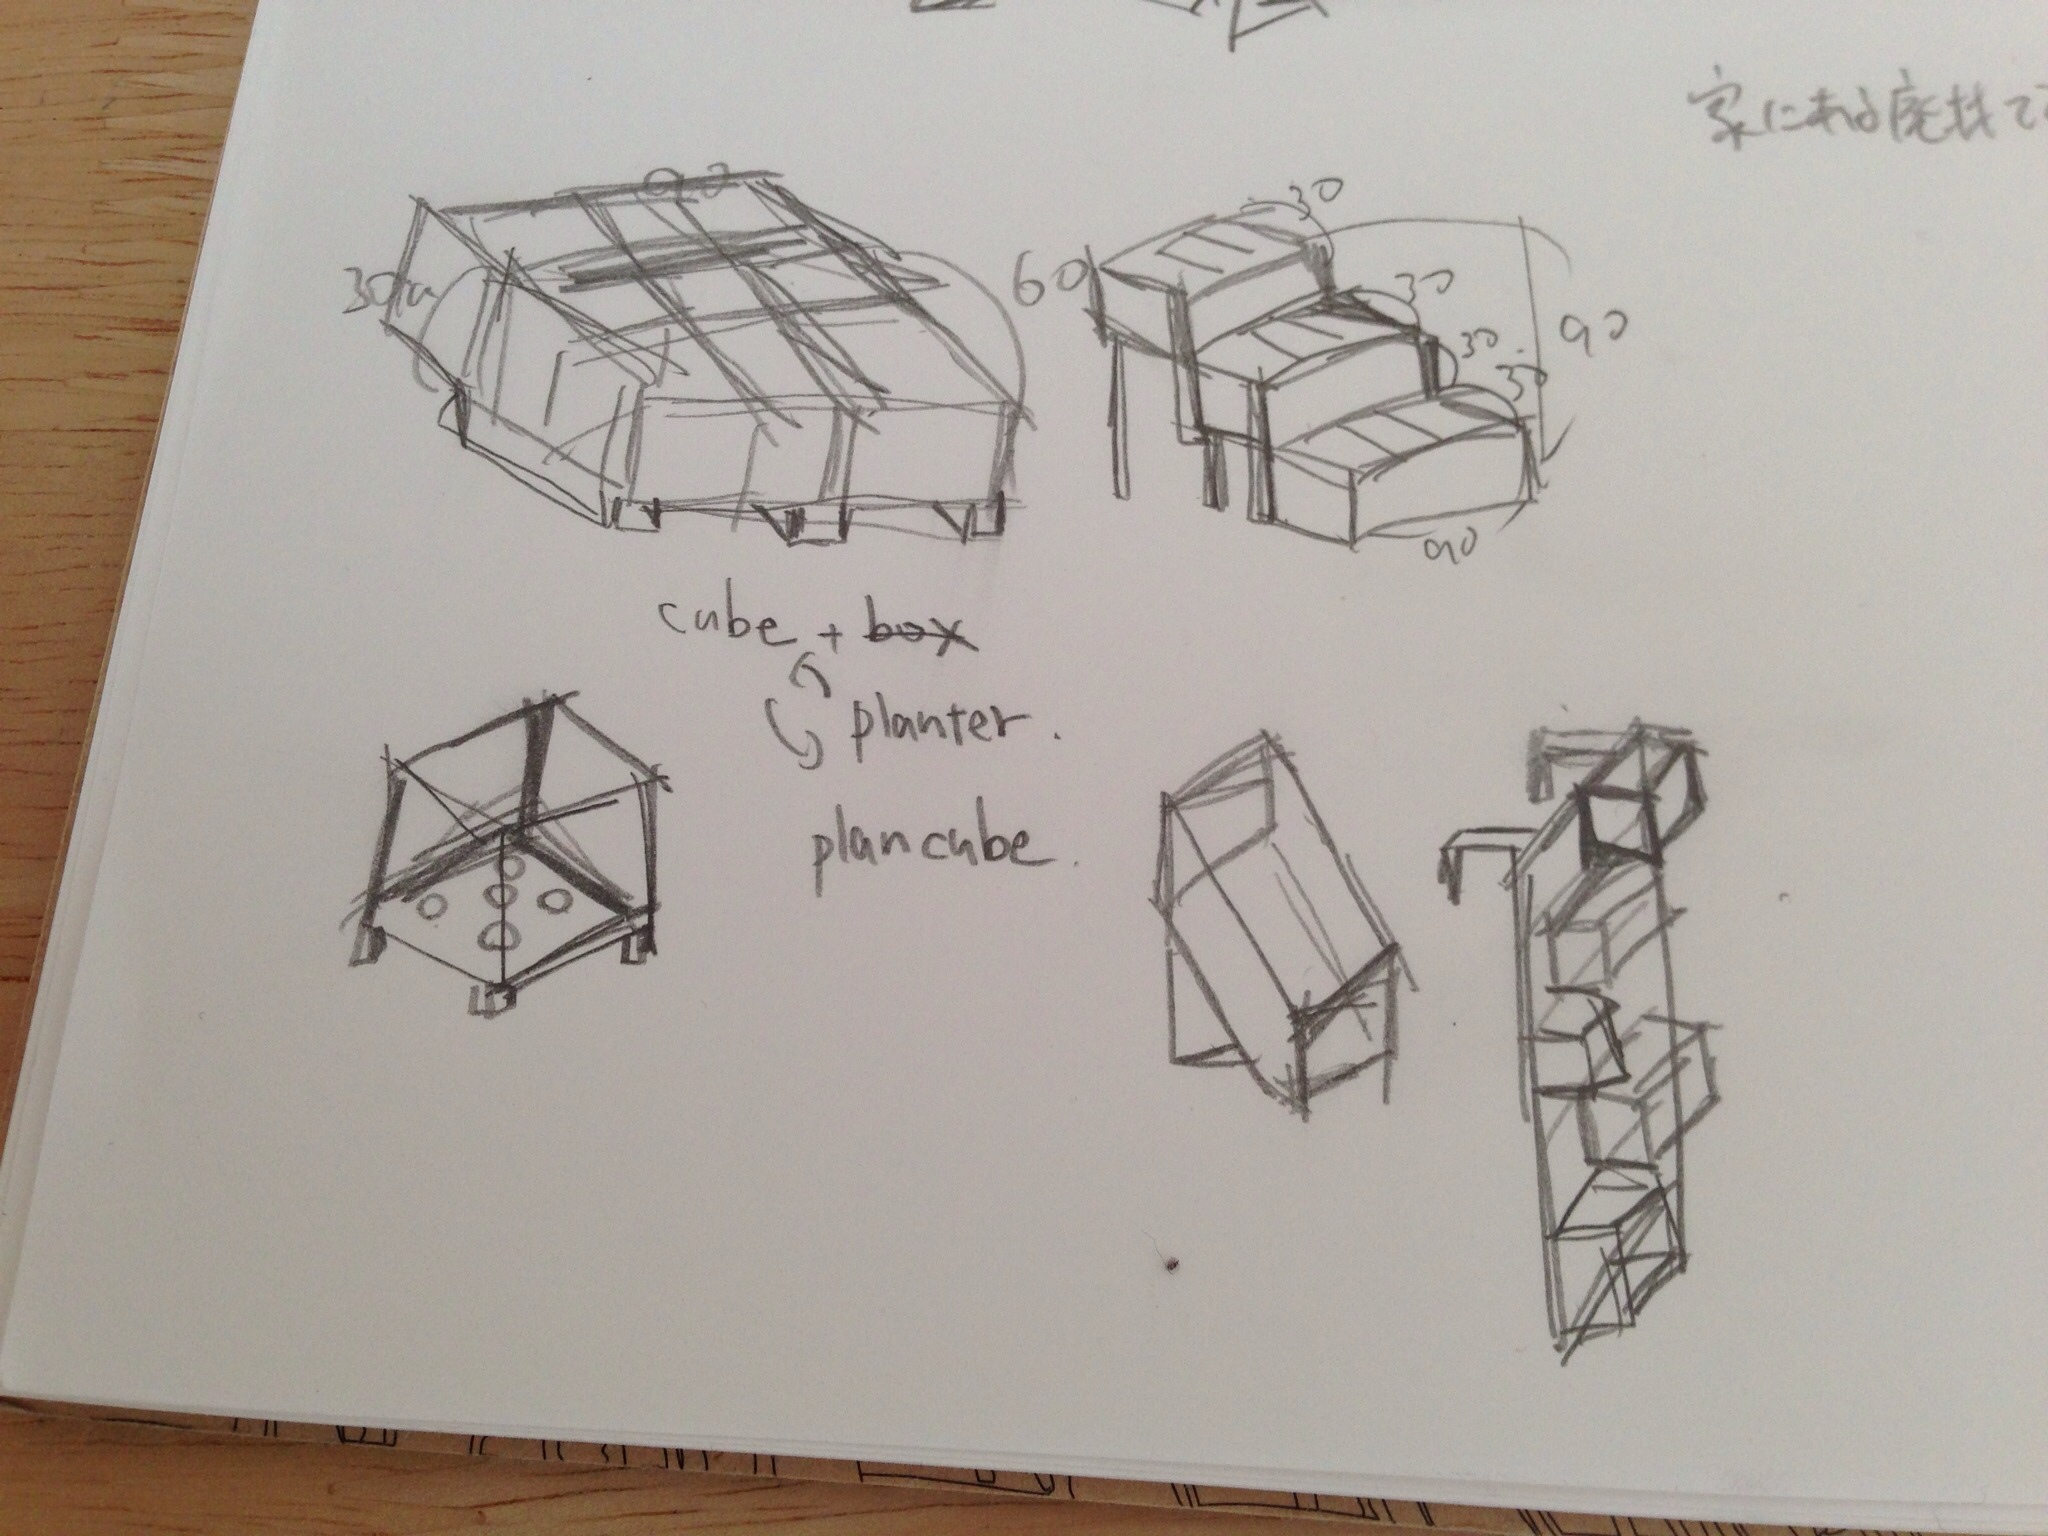 家にある廃材で
90
30
60
30
30
30
30
90
90
cube + box
planter.
plancube.